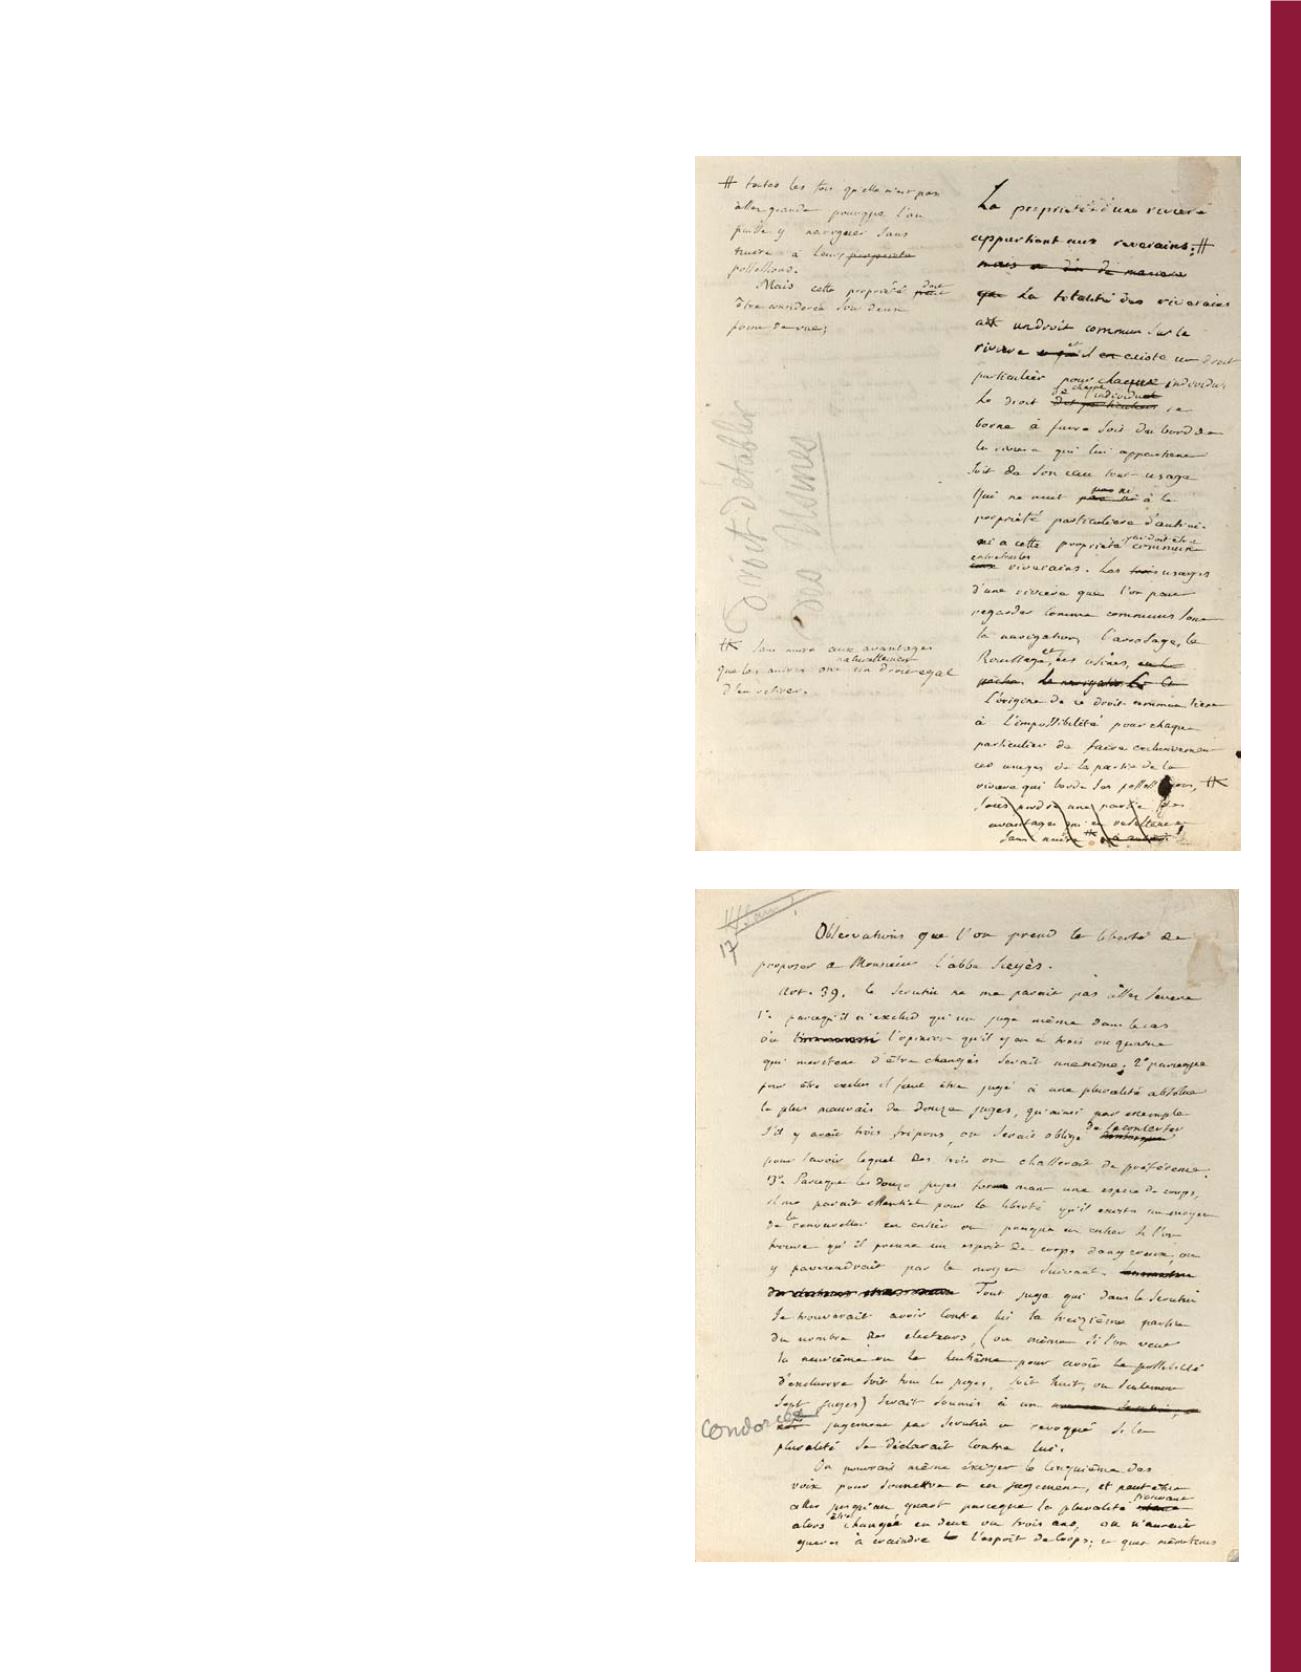 # toutes les fois qu'elle n'est pas
assez grande pour que l'on
puisse y naviguer sans
nuire à leurs propriétés
possessions.
Mais cette propriété peut doit
être considérée sous deux
points de vue;
Droit d'établir
des Usines
sans nuire aux avantages
que les autres ont naturellement un droit egal
d'en retirer.
La propriété d'une riviere
appartient aux riverains; #
mais
que La totalité des riverains
a un droit commun sur la
riviere et il en existe un droit
particulier pour chaque individu
Le droit de chaque individu se
borne à faire soit du bord de
la riviere qui lui appartient
soit de son eau tout usage
Qui ne nuit pas ni à la
propriété particuliere d'autrui
ni a cette propriété qui doit être commune
entre tous les riverains. Les trois usages
d'une riviere que l'on peut
regarder comme communs sont
la navigation, l'arrosage, le
Rouissage et les usines,
L'origine de ce droit commun tient
à l'impossibilité pour chaque
particulier de faire exclusivement
ces usages de la partie de la
riviere qui borde ses possessions,
sans perdre une partie des
avantages qui en resultent
sans nuire
17
Observations que l'on prend la liberté de
proposer a Monsieur l'abbé Sieyès.
Art. 39. le scrutin ne me parait pas assez severe
1°. parcequ'il n'exclud qu'un juge même dans le cas
où l'opinion qu'il y en a trois ou quatre
qui meritent d'être changés serait unanime. 2° parceque
pour être exclus il faut être jugé à une pluralité absolue
le plus mauvais de douze juges, qu'ainsi par exemple
s'il y avait trois fripons, on serait obligé de se concerter
pour savoir lequel des trois on chasserait de préférence.
3°. Parceque les douze juges formant une espece de corps,
il me parait essentiel pour la liberté qu'il existe un moyen
de le renouveller en entier ou presque en entier si l'on
trouve qu'il prenne un esprit de corps dangereux, on
y parviendrait par le moyen suivant.
Tout juge qui dans le scrutin
se trouverait avoir contre lui la treizième partie
du nombre des electeurs, (ou même si l'on veut
la neuvième ou la huitième pour avoir la possibilité
d'exclurre soit tous les juges, soit huit, ou seulement
sept juges) serait soumis à un
Condorcet
jugement par scrutin et revoqué si la
pluralité se déclarait contre lui.
On pourrait même éxiger le cinquième des
voix pour soumettre a un jugement, et peut être
aller jusqu'au quart parceque la pluralité pouvant
alors être changée en deux ou trois ans, on n'aurait
guères à craindre l'esprit de corps; et que même tems